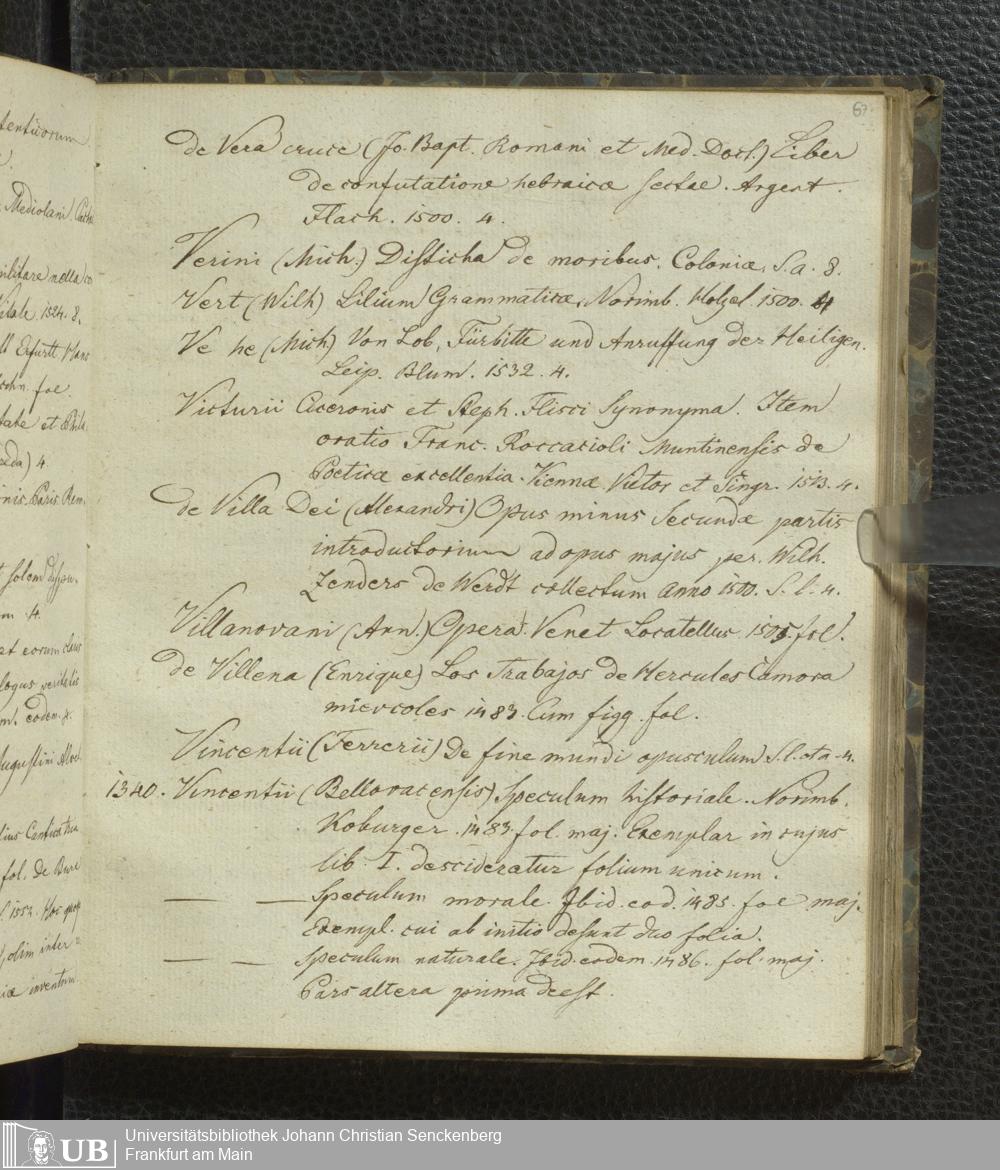 67.
de Vera cruce (Jo. Bapt. Romani et Med. Doct.) Liber
de confutatione hebraicæ sectae. Argent.
Flach. 1500. 4.
Verini (Mich.) Disticha de moribus. Coloniæ. S. a. 8.
Vert (Wilh) Lilium Grammaticæ, Norimb. Holzel 1500. 4
Ve he (Mich) Von Lob, Fürbitte und Anruffung der Heiligen.
Leip. Blum. 1532. 4.
Victurii Ciceronis et Steph. Flisci Synonyma. Item
oratio Franc. Roccacioli Muntinensis de
Poeticæ excellentia. Viennæ Vietor et Singr. 1513. 4.
de Villa Dei (Alexandri) Opus minus Secundæ partis
introductorium ad opus majus per. Wilh.
Zenders de Werdt collectum anno 1500. S. l. 4.
Villanovani (Arn.) Opera. Venet Locatellus. 1505. fol.
de Villena (Enrique) Los Trabajos de Hercules Camora
miercoles 1483. Cum figg. fol.
Vincentii (Ferrerii) De fine mundi opusculum S. l. ota - 4.
1340. Vincentii (Bellovacensis) Speculum historiale. Norimb.
Koburger. 1483. fol. maj. Exemplar in cujus
lib. I. descideratur folium unicum.
— — Speculum morale. Ibid. eod. 1485. fol maj.
Exempl. cui ab initio desunt duo folia.
— — Speculum naturale. Ibid. eodem. 1486. fol. maj.
Pars altera prima deest.
tentiorum
Mediolani
militare nella
1524. 8.
Erfurtt. Hans
fol.
et
4
Paris
solem
4.
et eorum
veritatis
eodem.
Augustini
fol. De Bure
1552. Hoc
olim inter
inventum.
UB
Universitätsbibliothek Johann Christian Senckenberg
Frankfurt am Main